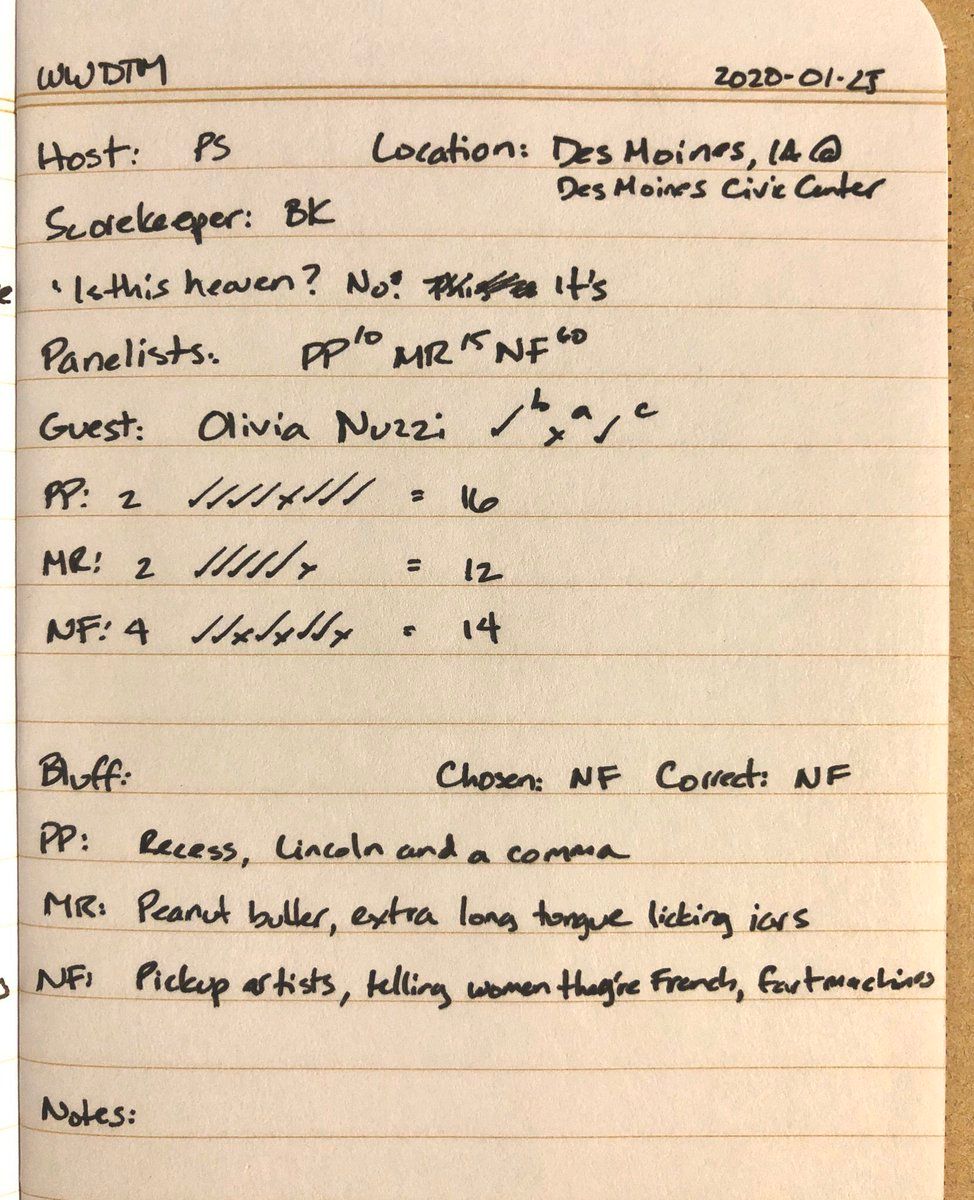 WWDTM 2020-01-25
Host: PS Location: Des Moines, IA @
Des Moines Civic Center
Scorekeeper: BK
"Is this heaven? No! It's
Panelists: PP 10 MR 15 NF 60
Guest: Olivia Nuzzi ✓ b x a ✓ c
PP: 2 ✓✓✓✓x✓✓✓ = 16
MR: 2 ✓✓✓✓✓x = 12
NF: 4 ✓✓x✓x✓✓x = 14
Bluff: Chosen: NF Correct: NF
PP: Recess, Lincoln and a comma
MR: Peanut butter, extra long tongue licking jars
NF: Pickup artists, telling women they're French, fart machines
Notes: